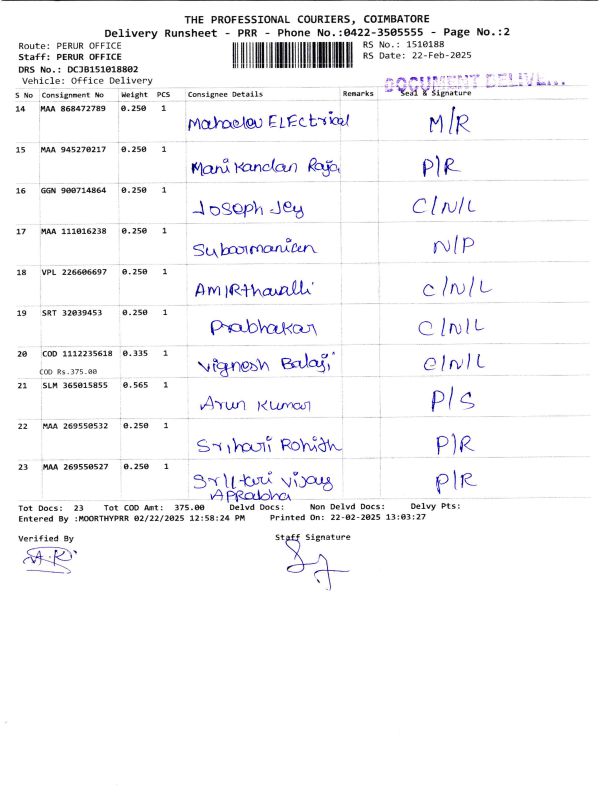 THE PROFESSIONAL COURIERS, COIMBATORE
Delivery Runsheet - PRR - Phone No.:0422-3505555 - Page No.:2
Route: PERUR OFFICE RS No.: 1510188
Staff: PERUR OFFICE RS Date: 22-Feb-2025
DRS No.: DCJB151018802
Vehicle: Office Delivery DOCUMENT
S No Consignment No Weight PCS Consignee Details Remarks Seal & Signature
14 MAA 868472789 0.250 1 Mahadev ELEctrical M/R
15 MAA 945270217 0.250 1 Manikandan Raja P/R
16 GGN 900714864 0.250 1 Joseph Jey C/N/L
17 MAA 111016238 0.250 1 Subarmanian N/P
18 VPL 226606697 0.250 1 AMIRthavalli C/N/L
19 SRT 32039453 0.250 1 Prabhakar C/N/L
20 COD 1112235618 0.335 1 Vignesh Balaji C/N/L
COD Rs.375.00
21 SLM 365015855 0.565 1 Arun Kumar P/S
22 MAA 269550532 0.250 1 Srihari Rohith P/R
23 MAA 269550527 0.250 1 Vijay P/R
Tot Docs: 23 Tot COD Amt: 375.00 Delvd Docs: Non Delvd Docs: Delvy Pts:
Entered By :MOORTHYPRR 02/22/2025 12:58:24 PM Printed On: 22-02-2025 13:03:27
Verified By Staff Signature